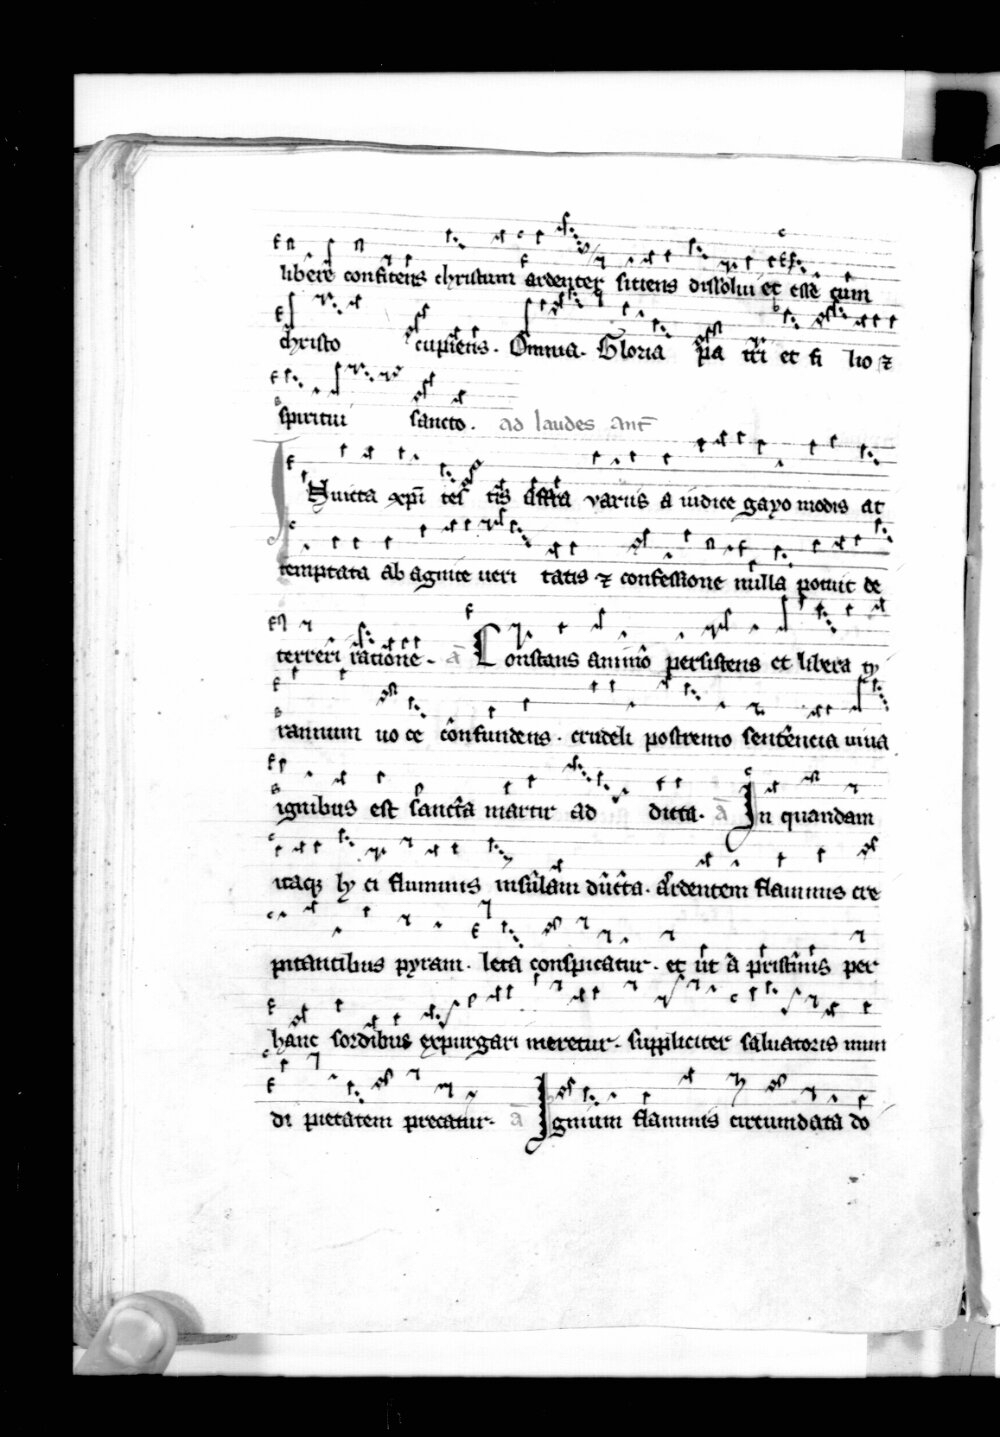 libere confitens christum ardenter sitiens dissolui et esse cum
christo cupiens. Omnia. Gloria pa tri et fi lio ⁊
spiritui sancto. ad laudes Ant̄
INuicta xp̄i tes tis affra variis a iudice gayo modis at
temptata ab agnite veri tatis ⁊ confessione nulla potuit de
terreri ratione. ā Constans animo persistens et libera ty
rannum uo ce confundens. crudeli postremo sententia uiua
ignibus est sancta martir ad dicta. ā In quandam
itaqꝫ ly ci fluminis insulam ducta. Ardentem flammis cre
pitantibus pyram. leta conspicatur. et ut a pristinis per
hanc sordibus expurgari meretur. suppliciter saluatoris mun
di pietatem precatur. ā Ignium flammis circumdata do